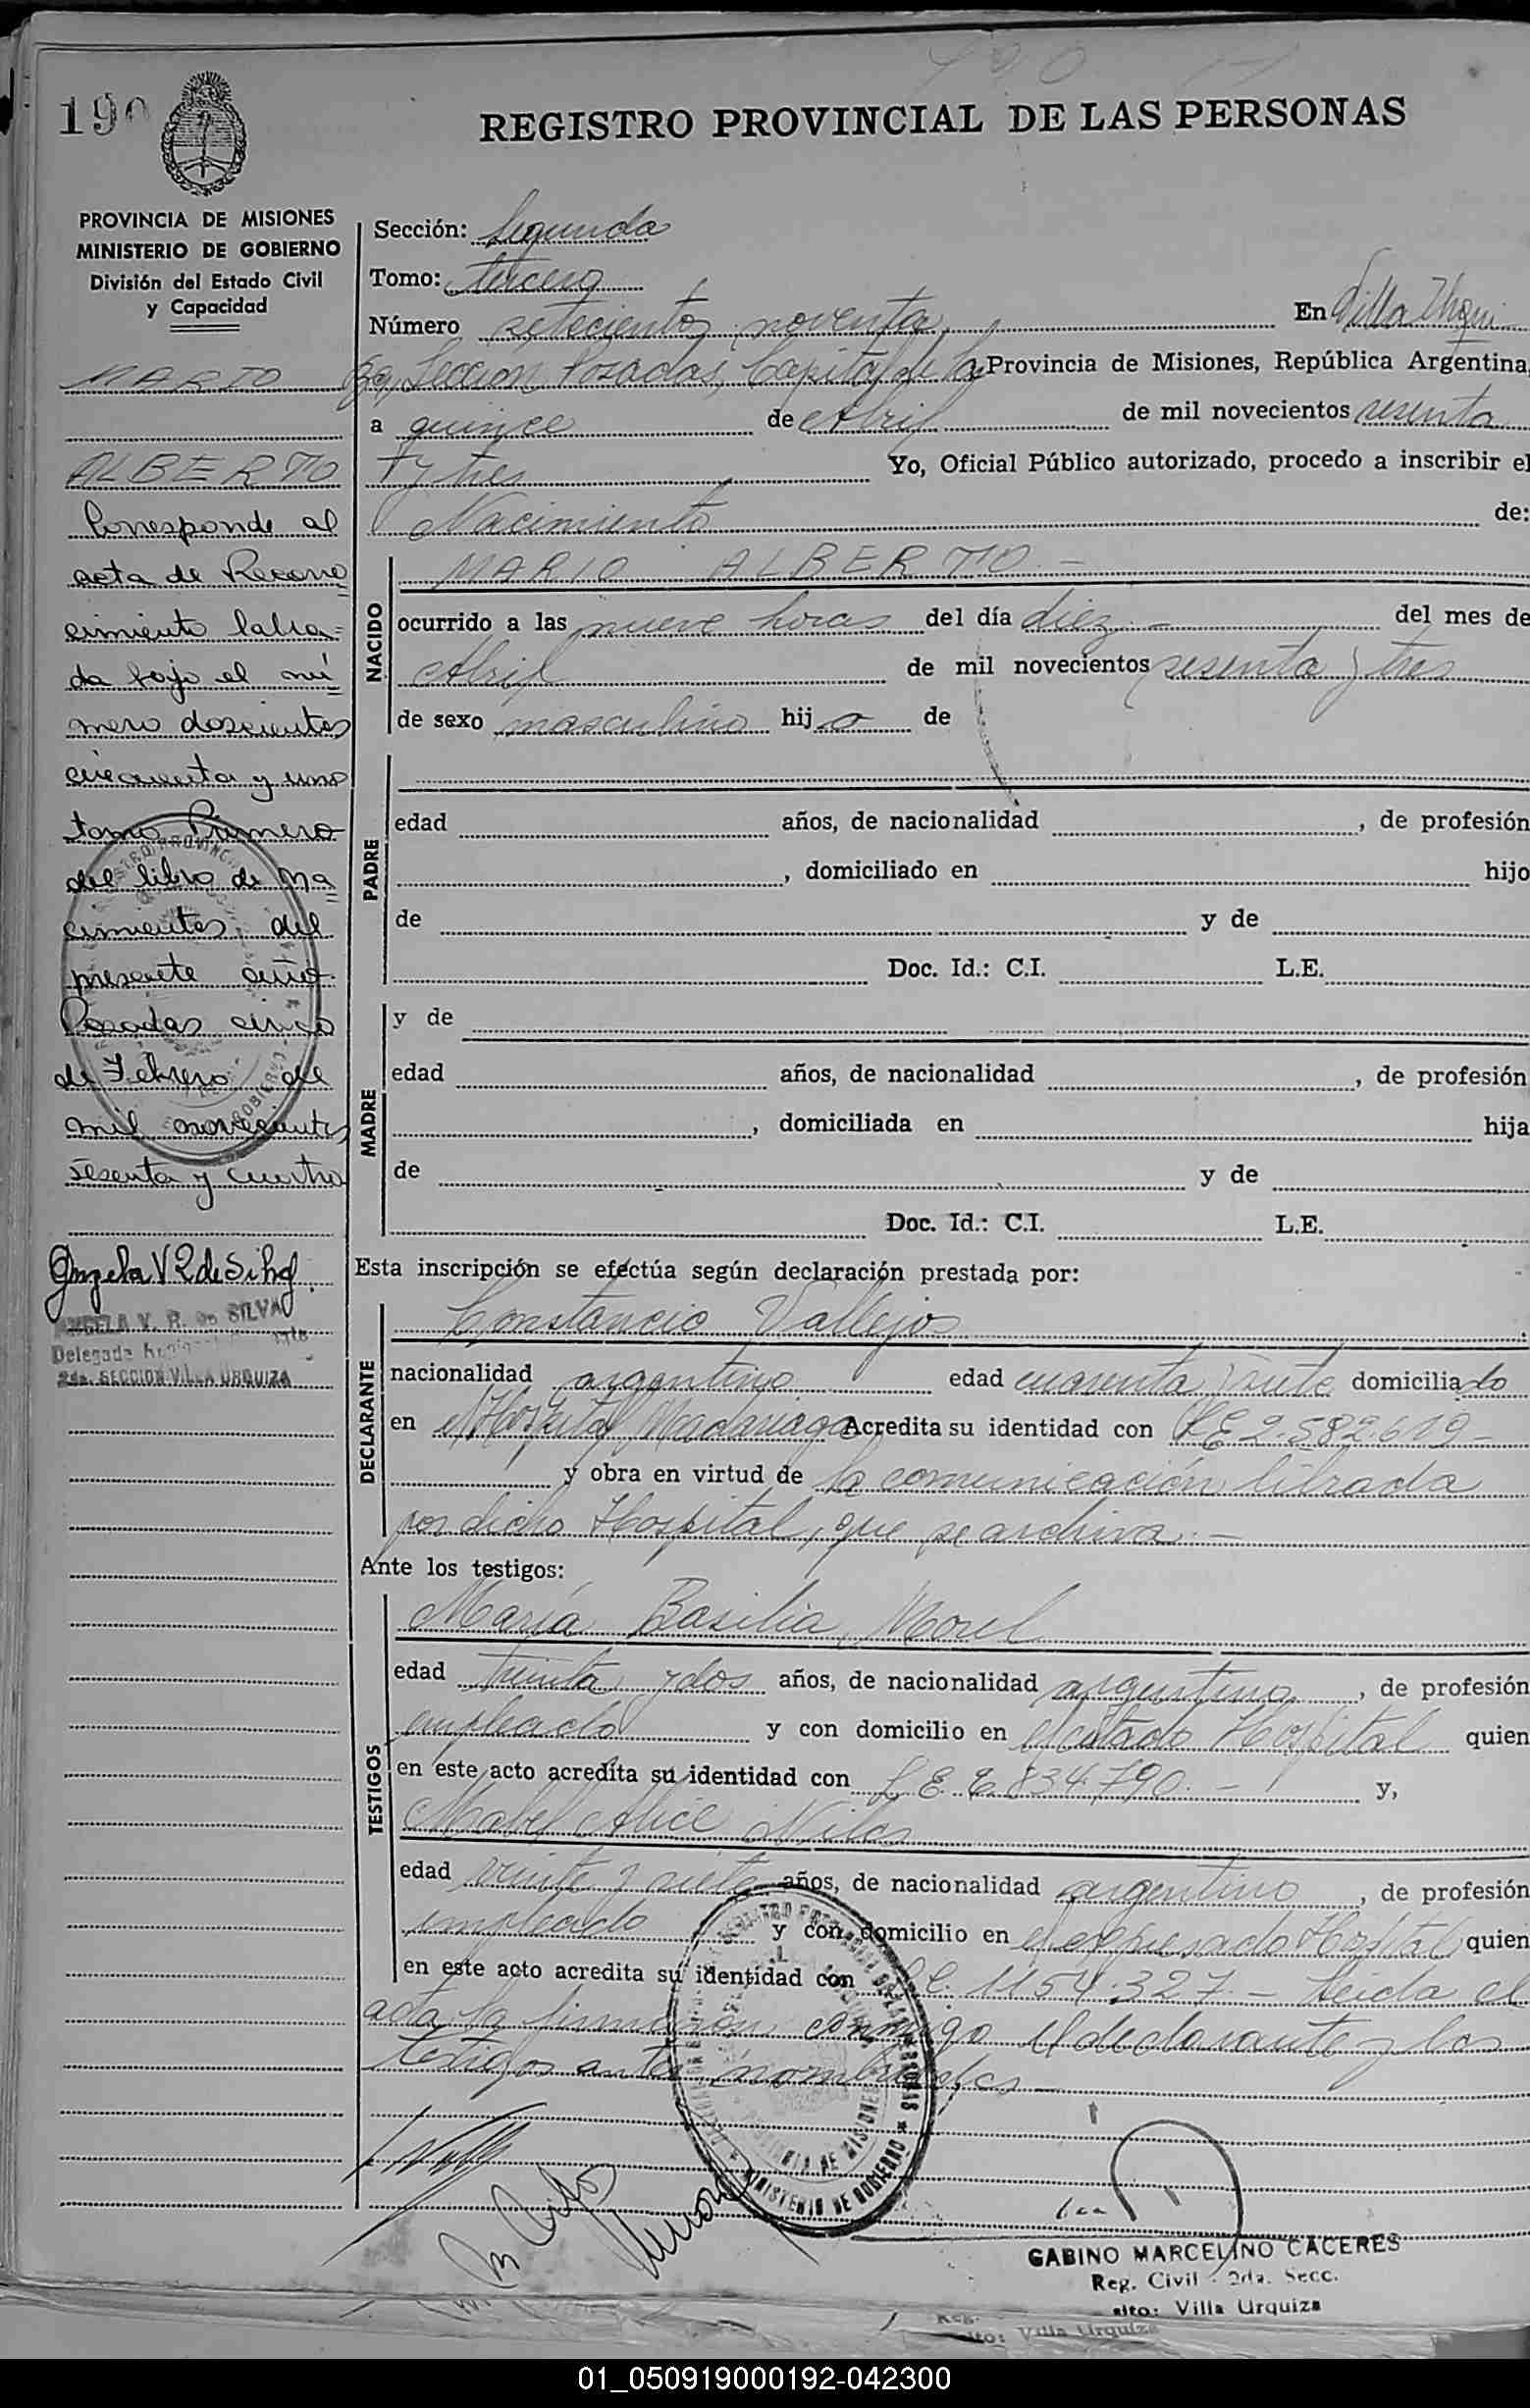 190
REGISTRO PROVINCIAL DE LAS PERSONAS
PROVINCIA DE MISIONES
MINISTERIO DE GOBIERNO
División del Estado Civil
y Capacidad
MARIO
ALBERTO
Corresponde al
acta de Recono
cimiento labra=
da bajo el nú
mero doscientos
cincuenta y uno
tomo Primero
del libro de na
cimientos del
presente año.
Posadas cinco
de Febrero de
mil novecientos
sesenta y cuatro
Angela V R de Silva
ANGELA V. R. DE SILVA
Delegada
2da. SECCION VILLA URQUIZA
Sección: Segunda
Tomo: tercero
Número setecientos noventa En Villa Urqui
za, Sección Posadas, Capital de la Provincia de Misiones, República Argentina,
a quince de Abril de mil novecientos sesenta
y tres Yo, Oficial Público autorizado, procedo a inscribir el
Nacimiento de:
NACIDO
MARIO ALBERTO.-
ocurrido a las nueve horas del día diez.- del mes de
Abril de mil novecientos sesenta y tres
de sexo masculino hijo de
PADRE
edad años, de nacionalidad , de profesión
, domiciliado en hijo
de y de
Doc. Id.: C.I. L.E.
MADRE
y de
edad años, de nacionalidad , de profesión
, domiciliada en hija
de y de
Doc. Id.: C.I. L.E.
Esta inscripción se efectúa según declaración prestada por:
DECLARANTE
Constancio Vallejos
nacionalidad argentino edad cuarenta y siete domiciliado
en el Hospital Madariaga Acredita su identidad con LE 2.582.619-
y obra en virtud de la comunicación librada
por dicho Hospital, que se archiva.-
Ante los testigos:
TESTIGOS
María Basilia Morel
edad treinta y dos años, de nacionalidad argentina, de profesión
empleado y con domicilio en el citado Hospital quien
en este acto acredita su identidad con L.E. 6.834.790.- y,
Mabel Alice
edad veinte y siete años, de nacionalidad argentino, de profesión
empleado y con domicilio en el expresado Hospital quien
en este acto acredita su identidad con 1154.327.- Leída el
acta la firmaron conmigo el declarante y los
testigos antes nombrados
MINISTERIO DE GOBIERNO
GABINO MARCELINO CACERES
Reg. Civil 2da. Secc.
Villa Urquiza
01_050919000192-042300